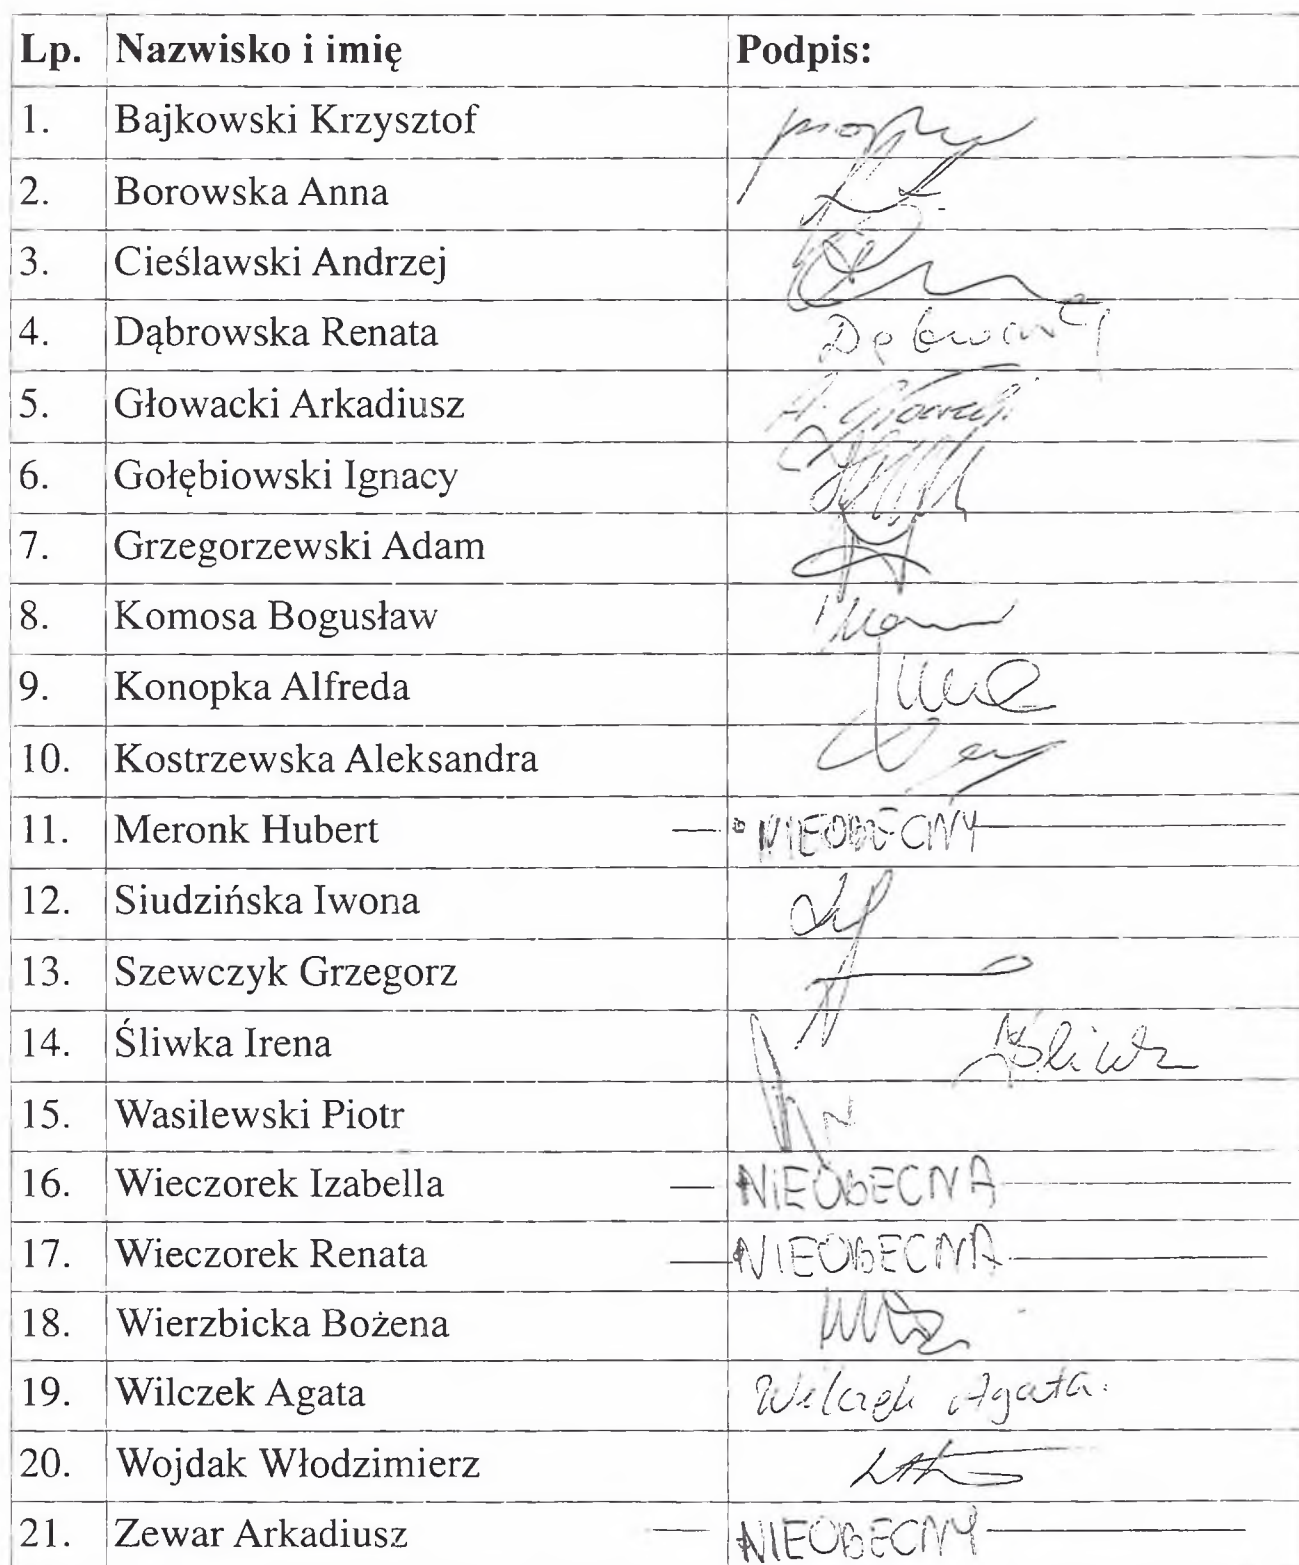 Lp. Nazwisko i imię Podpis:
1. Bajkowski Krzysztof
2. Borowska Anna
3. Cieślawski Andrzej
4. Dąbrowska Renata
5. Głowacki Arkadiusz A. Głowacki
6. Gołębiowski Ignacy
7. Grzegorzewski Adam
8. Komosa Bogusław
9. Konopka Alfreda
10. Kostrzewska Aleksandra
11. Meronk Hubert — NIEOBECNY —
12. Siudzińska Iwona
13. Szewczyk Grzegorz
14. Śliwka Irena
15. Wasilewski Piotr
16. Wieczorek Izabella — NIEOBECNA —
17. Wieczorek Renata — NIEOBECNA —
18. Wierzbicka Bożena
19. Wilczek Agata Wilczek Agata
20. Wojdak Włodzimierz
21. Zewar Arkadiusz — NIEOBECNY —